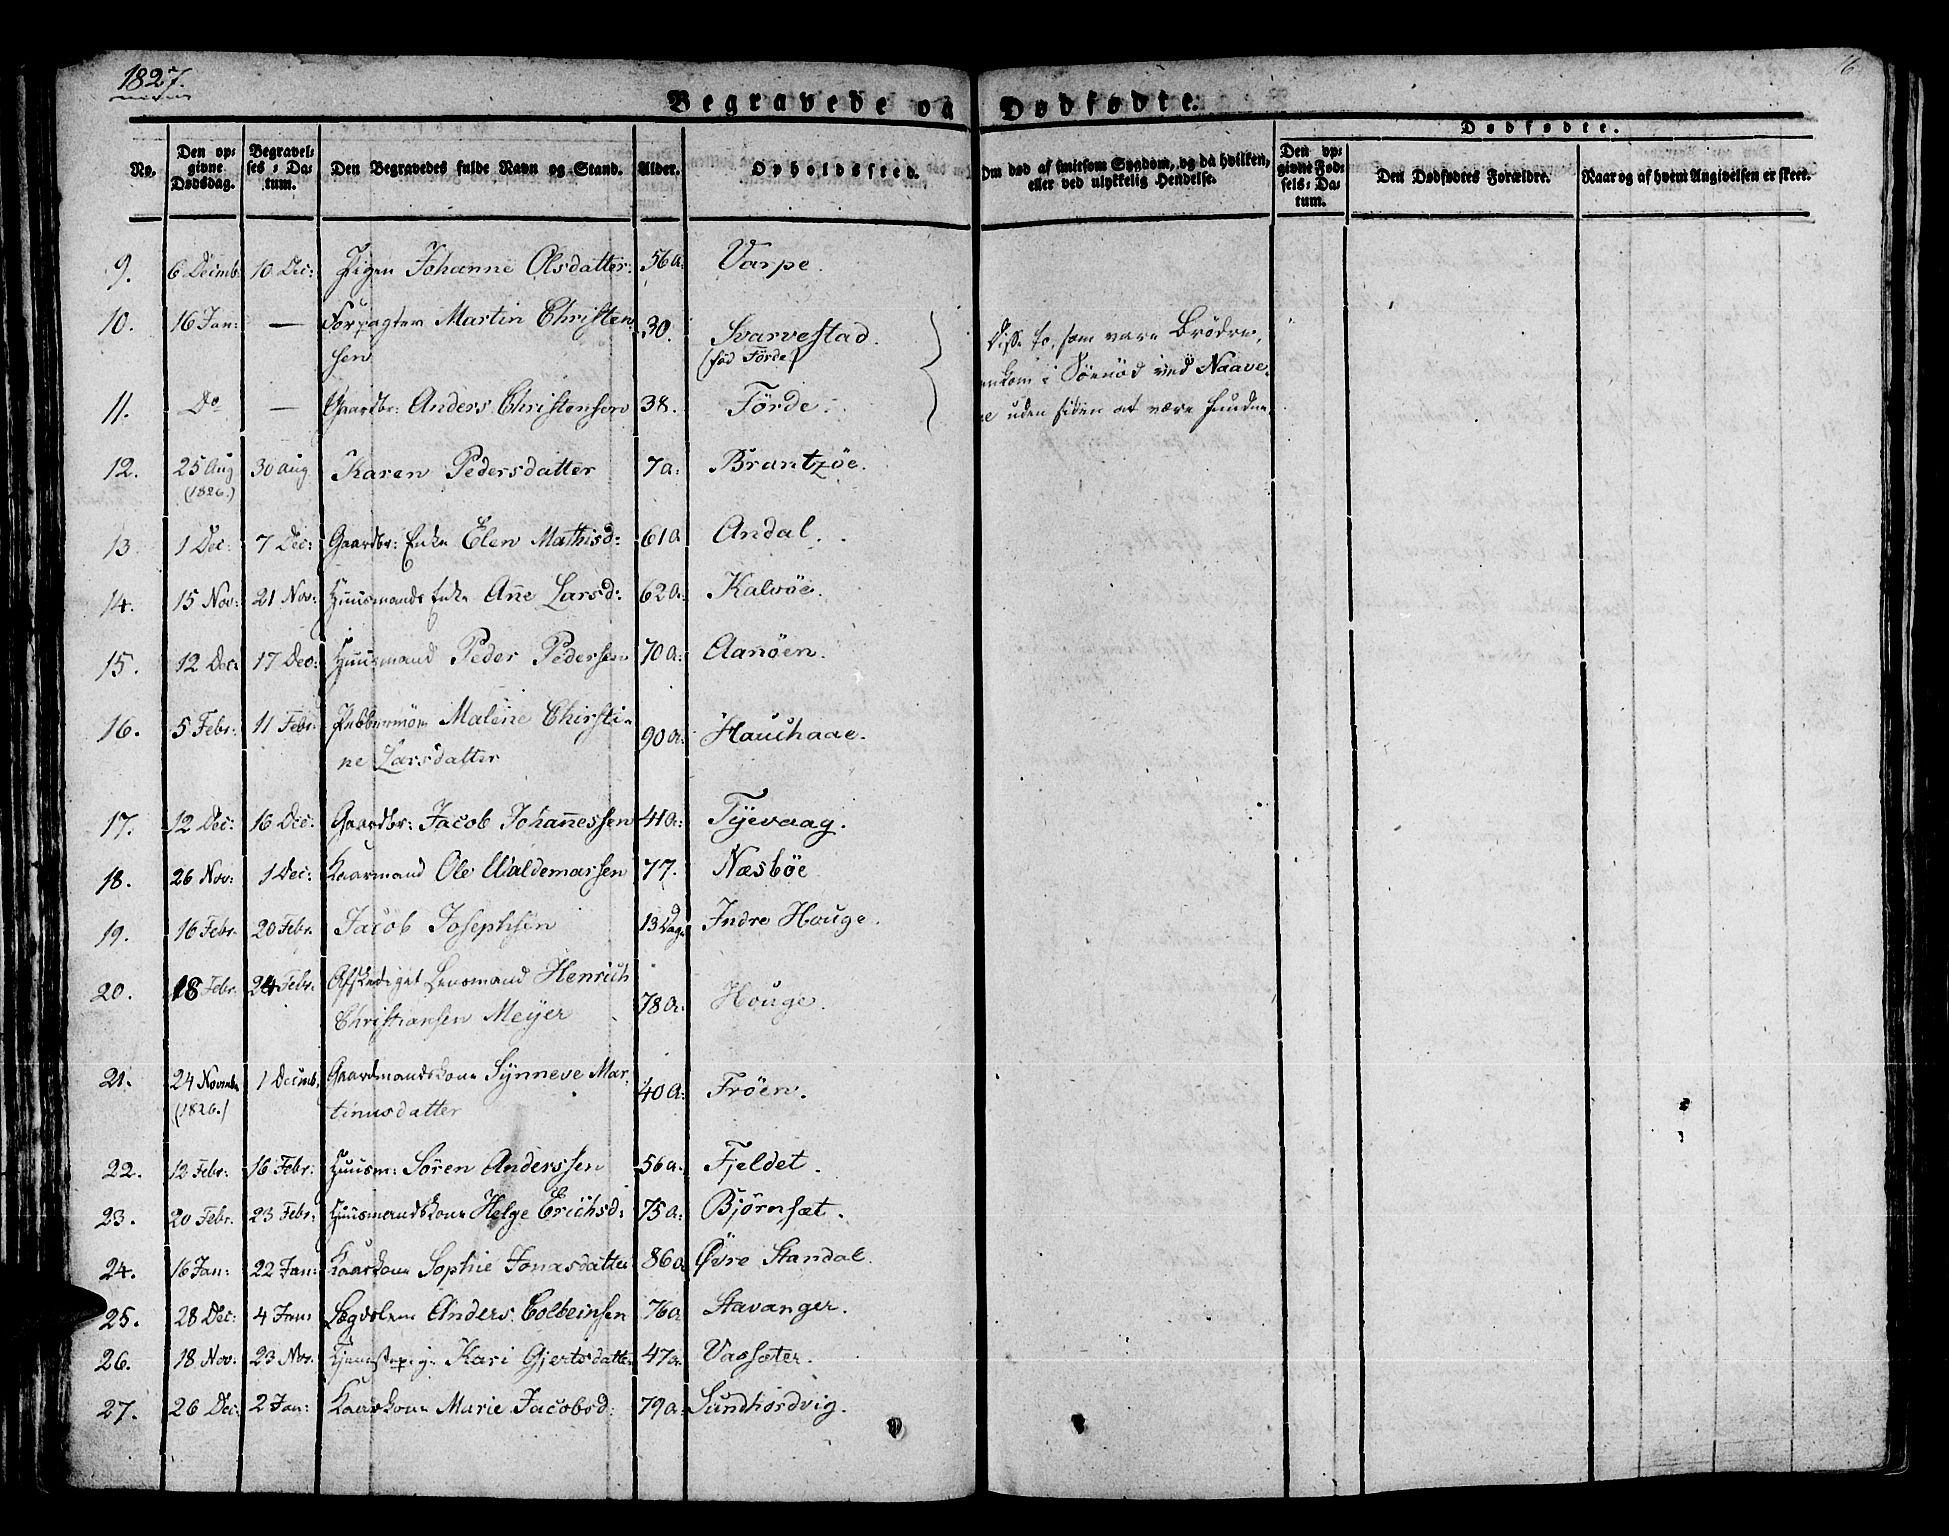 1827.
6
Begravede og Dødfødte.
Dødfødte.
No.
Den op-
givne
Dødsdag.
Begravel-
ses-Da-
tum.
Den Begravedes fulde Navn og Stand.
Alder.
Opholdssted.
Om død af smitsom Sygdom, og da hvilken,
eller ved ulykkelig Hendelse.
Den op-
givne Fød-
sels-Da-
tum.
Den Dødfødtes Forældre.
Naar og af hvem Angivelsen er skeet.
9. 6 Decemb: 10 Dec: Pigen Johanne Olsdatter. 56 a: Varpe.
10. 16 Jan: — Forpagter Martin Christen-
sen 30. Svarvestad.
(fød Förde)
Disse to, som vare Brödre,
omkom i Söenöd ved Naave-
uden siden at være fundne
11. Do — Gaardbr: Anders Christensen 38. Förde.
12. 25 Aug 30 Aug Karen Pedersdatter 7 a: Brantzöe.
(1826.)
13. 1 Dec: 7 Dec: Gaardbr: Enke Elen Mathisd: 61 a Andal.
14. 15 Nov: 21 Nov: Huusmands Enke Añe Larsd: 62 a: Kalvöe.
15. 12 Dec: 17 Dec: Huusmand Peder Pedersen 70 a: Aanöen.
16. 5 Febr: 11 Febr: Pebbermöe Malene Christi-
ne Larsdatter 90 a: Hauchaae.
17. 12 Dec: 16 Dec: Gaardbr: Jacob Johañessen 41 a: Tyevaag.
18. 26 Nov: 1 Dec: Kaarmand Ole Waldemarsen 77. Næsböe
19. 16 Febr. 20 Febr. Jacob Josephsön 13 Dage Indre Houge.
20. 18 Febr. 24 Febr. Afskediget Lensmand Henrich
Christiansen Meÿer 78 a: Houge.
21. 24 Novemb 1 Decemb. Gaardmandskone Sÿnneve Mar-
(1826.) tinusdatter 40 a: Fröen.
22. 12 Febr: 16 Febr: Huusm: Sören Anderssen 56 a. Fjeldet.
23. 20 Febr. 23 Febr: Huusmandskone Helge Erichsd: 75 a: Björnsæt.
24. 16 Jan: 22 Jan: Kaarkone Sophie Jonasdatter 86 a Øvre Standal.
25. 28 Dec: 4 Jan: Lægdslem Anders Colbeinsen 76 a Stavanger.
26. 18 Nov: 23 Nov. Tjenestepig: Kari Gjertsdatter 47 a. Vassæter.
27. 26 Dec: 2 Jan: Kaarkone Marie Jacobsd: 79 a: Sundhordvig.